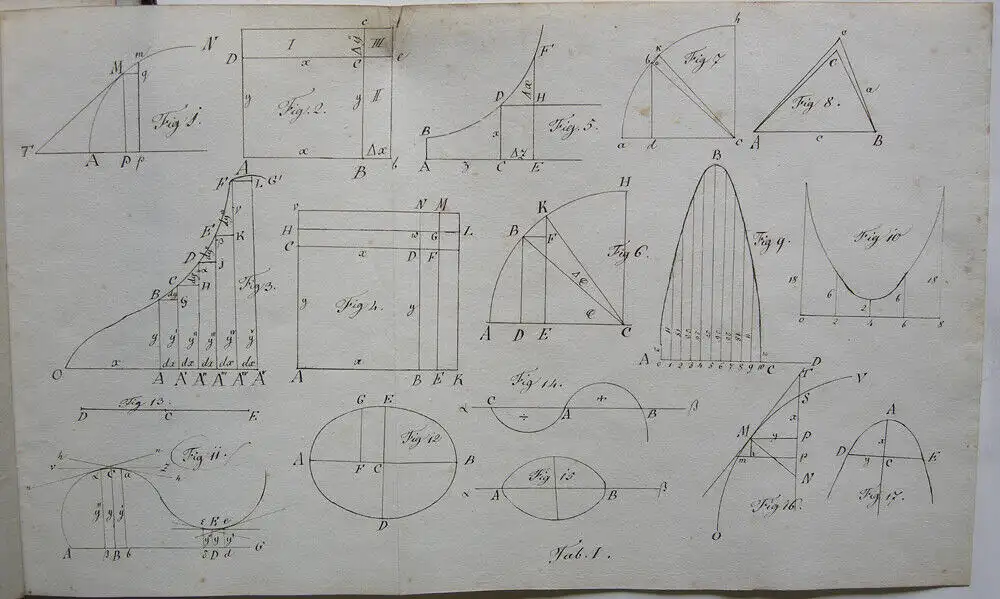 Fig 1.
T A P p M m q N
Fig. 2.
D A B b c C e
I III II
x y Δy x Δx y
Fig. 5.
B A C E D H F
x Δz Δx
Fig 7
a d b K h C
Fig 8.
A c B C e a
Fig 3.
O A A' A'' A''' A'''' B C D E F L G
G H J K
x dx dx dx dx dx
y y' y'' y''' dy dy dy
Fig. 4.
H C A B E K N M L G D F
x y x y
Fig 6.
A D E C B F K H
Δφ φ
Fig 9.
B A C D
0 1 2 3 4 5 6 7 8 9 10
Fig 10
18 6 2 6 18
0 2 4 6 8
Fig. 13.
D C E
Fig 14.
α C A B β
÷ +
Fig 11.
A B b C a D d E e G
Fig 12
A B C D E F G
Fig 15
α A B β
Fig 16.
T V S x P y M m p N O
Fig 17.
A D C E x y
Tab. I.